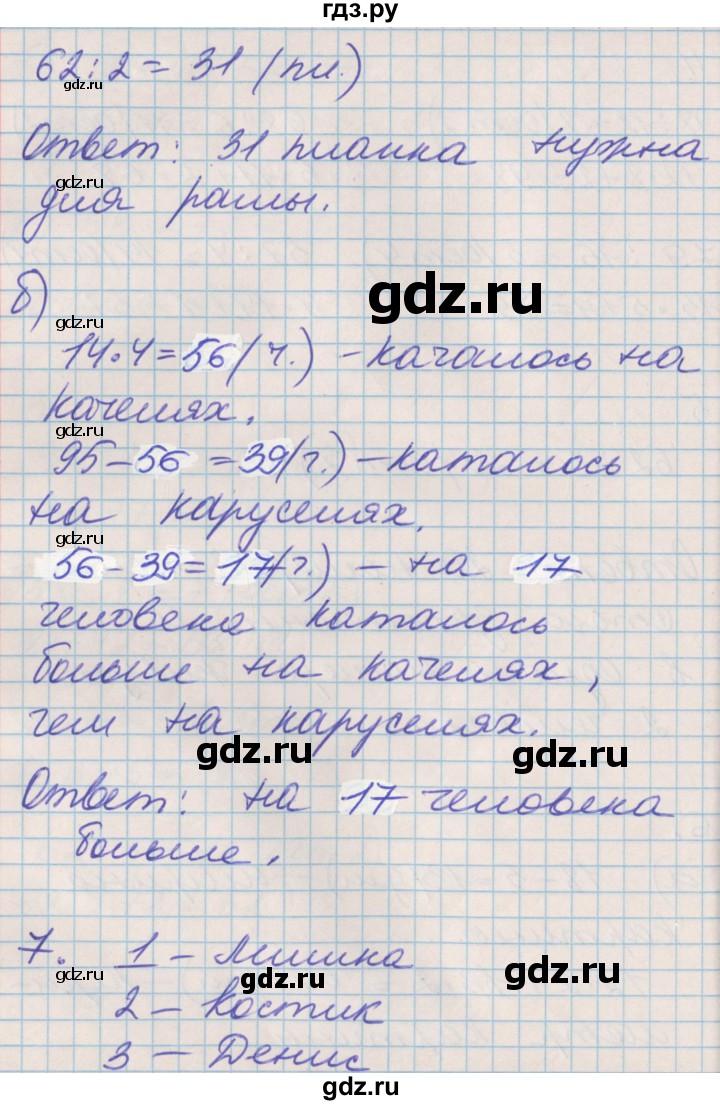 гдз.ру
62:2=31 (пл.)
gdz.ru
Ответ: 31 планка нужна
gdz.ru
для рамы.
б)
gdz.ru
gdz.ru
14·4=56(ч.) – качалось на
качелях.
gdz.ru
95–56=39(ч.) – каталось
на каруселях.
gdz.ru
56–39=17(ч.) – на 17
человека каталось
больше на качелях,
чем на каруселях.
gdz.ru
gdz.ru
Ответ: на 17 человека
больше.
7. 1 – Мишка
gdz.ru
gdz.ru
2 – Костик
3 – Денис
gdz.ru